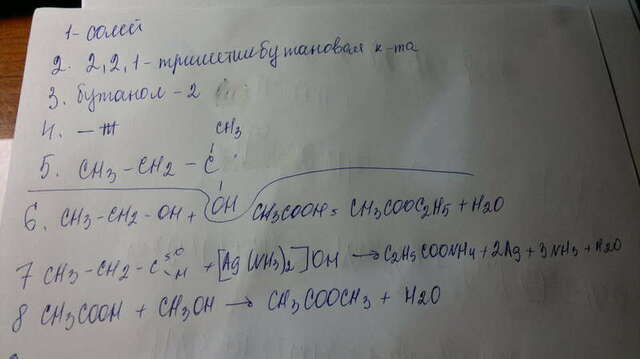 1- солей
2. 2,2,1-триметилбутановая к-та
3. бутанол-2
4. -
CH3
5. CH3-CH2-C
OH
6. CH3-CH2-OH + CH3COOH = CH3COOC2H5 + H2O
7 CH3-CH2-C=O-H + [Ag(NH3)2]OH → C2H5COONH4 + 2Ag + 3NH3 + H2O
8 CH3COOH + CH3OH → CH3COOCH3 + H2O